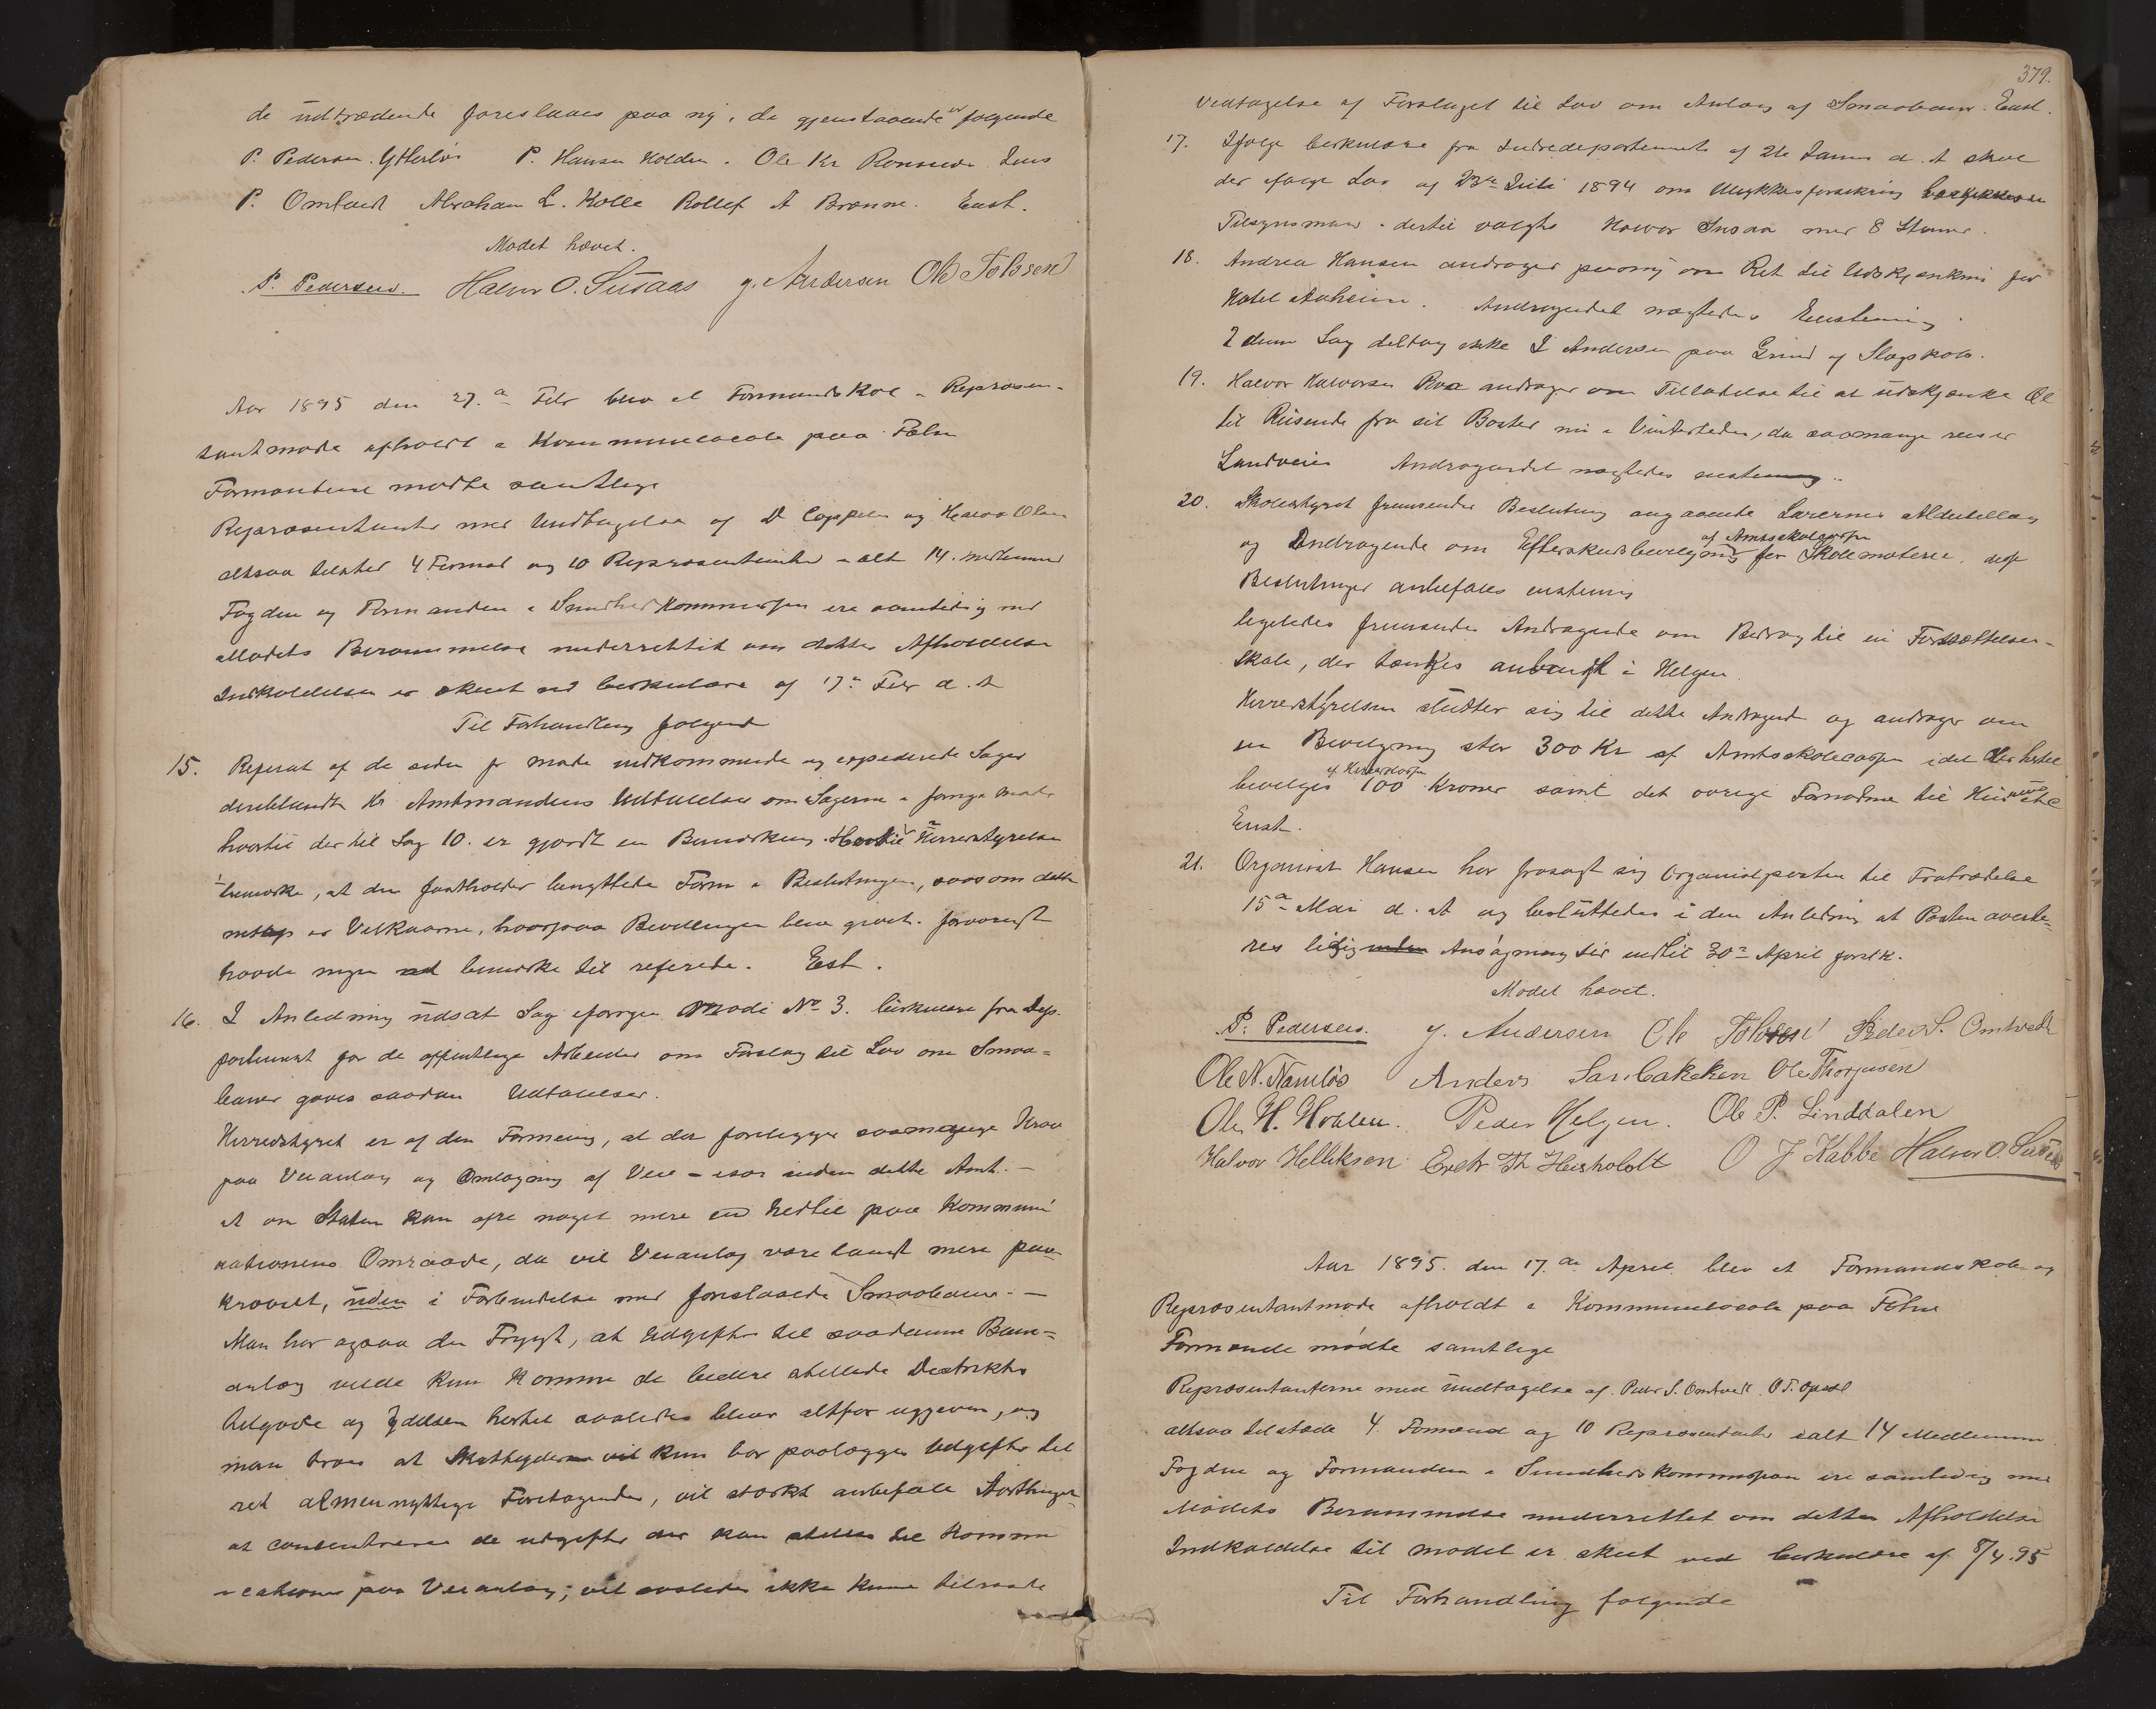 de üdtrædende foreslaaes paa ny, de gjenstaaende er følgende
P. Pedersen Ytterbøe P. Hansen Holden. Ole Kr Ronnius Jens
P. Omtvedt Abraham L. Kolle Rollef A Brønne. Enst.
Mødet hævet.
P. Pedersen. Halvor O. Suvaas J. Andersen Ole Tolvsen
Aar 1895 den 27.de Febr blev et Formandskab- Repræsen-
tantmøde afholdt i Kommunelocale paa Følm
Formændene mødte samtlige
Repræsentanter med Undtagelse af D Cappelen og Halvor Olsen
altsaa tilsted 4 Formæd og 10 Repræsentanter ialt 14. medlemmer
Fogden og Formanden i Sundhedskommissjon ere samtidig med
Mødets Berammelse underrettet om dettes Afholdelse
Indkaldelsen er skeet ved Cirkulære af 17de Febr d. A
Til Forhandling følgende
15. Referat af de siden fr møde indkommende og expederede Sager
deriblandt Hr Amtmandens Udtalelser om Sagerne i forrige møde
hvortil der til Sag 10. er gjordt en Bemærkning. Hertil Herredstyrelsen
bemærke, at den fastholder benyttede Form i Beslutningen, saasom dette
er Vilkaarne, hvorpaa Bevillingen blev givet. forøvrigt
havde ingen bemærke til referede. Enst.
16. I Anledning üdsat Sag i forrige Møde No 3. Cirkulære fra Dep-
partement for de offentlige Arbeider om Forslag til Lov om Smaa=
baner gaves saadan Udtalelser.
Herredstyret er af den Formening, at der foreligger saamange Krav
paa Veianlæg og Omlægning af Veie - især inden dette Amt. -
at om Staten kan ofre noget mere end hertil paa Kommuni
kationens Omraade, da vil Veianlæg være langt mere paa-
krævet, üden i Forbindelse med foreslaaede Smaabaner. -
Man har ogsaa den Frygt, at Udgifter til saadanne Bane=
anlæg vilde kun komme de bedre stillede Distrikter
tilgode og Ydelsen hertil saaledes bliver altfor uggeven, og
man troer at Skatteyderne vil kun bør paalægges Udgifter til
ret almennyttige Foretagender, vil stærkt anbefale Storthinget
at concentrere de udgifter der kan stilles til Kommu
nicationer paa Veianlæg; vil saaledes ikke kunne tilraade
379.
Vedtagelse af Forslaget til Lov om Anlæg af Smaabaner. Enst.
17. Ifølge Cirkulære fra Indredepartementet af 26 Januar d. A skal
der ifølge Lov af 23de Juli 1894 om Ulykkesforsikring
Tilsynsmænd - dertil valgte Halvor Snsaa med 8 Stemer.
18. Andrea Hansen andrager paany om Ret til Udskjænkning for
Hotel Anheim. Andragendet nægtedes Enstemig
I denne Sag deltog ikke J Andersen paa Grund af Slægskab.
19. Halvor Halvorsen Roa andrager om Tilladelse til at udskjænke Øl
til Reisende fra sit Bosted nu i Vinterteden, da saamange reiser
Landveien Andragendet nægtedes enstemig.
20. Skolestyret fremsender Beslutning angaaende Lærernes Alderstillæg
af Amtsskolekassen
og Andragende om Efterskudsbevilgning for Skolemateriel. disse
Beslutninger anbefales enstemig
ligeledes fremsendes Andragende om Bidrag til en Fortsættelses-
skole, der tænkes anbragt i Helgen
Herredstyrelsen slutter sig til dette Andragende og andrager om
en Bevilgning stor 300 Kr af Amtsskolecassen idet der hertil
af Herredskassen
bevilges 100 Kroner samt det øvrige Fornødne til
Enst.
21. Organist Hansen har frasagt sig Organistposten til Fratrædelse
15de Mai d. A og besluttedes i den Anledning at Posten averte-
res ledig Ansøgningstid indtil 30te April førstk.
Mødet hævet.
P. Pedersen. J. Andersen Ole Tolvsen Peder S. Omtvedt
Ole N. Namløs Anders Sanbakeken Ole Thorjusen
Ole H. Hoblen. Peder Helgen. Ole P. Linddalen
Halvor Helliksen Evetr Th Heisholdt O J Kabbe Halvor O. Suvaas
Aar 1895. den 17.de April blev et Formandskab- og
Repræsentantmøde afholdt i Kommunelocale paa Følm
Formænde mødte samtlige
Repræsentanterne med Undtagelse af. Peder S. Omtvedt. O T. Opsal
altsaa tilstæde 4. Formænd og 10 Repræsentanter ialt 14 Medlemmer
Fogden og Formanden i Sundhedskommisjon ere samtidig med
Mødets Berammelse underrettet om dettes Afholdelse
Indkaldelse til mødet er skeet ved Cirkulære af 8/4.95
Til Forhandling følgende